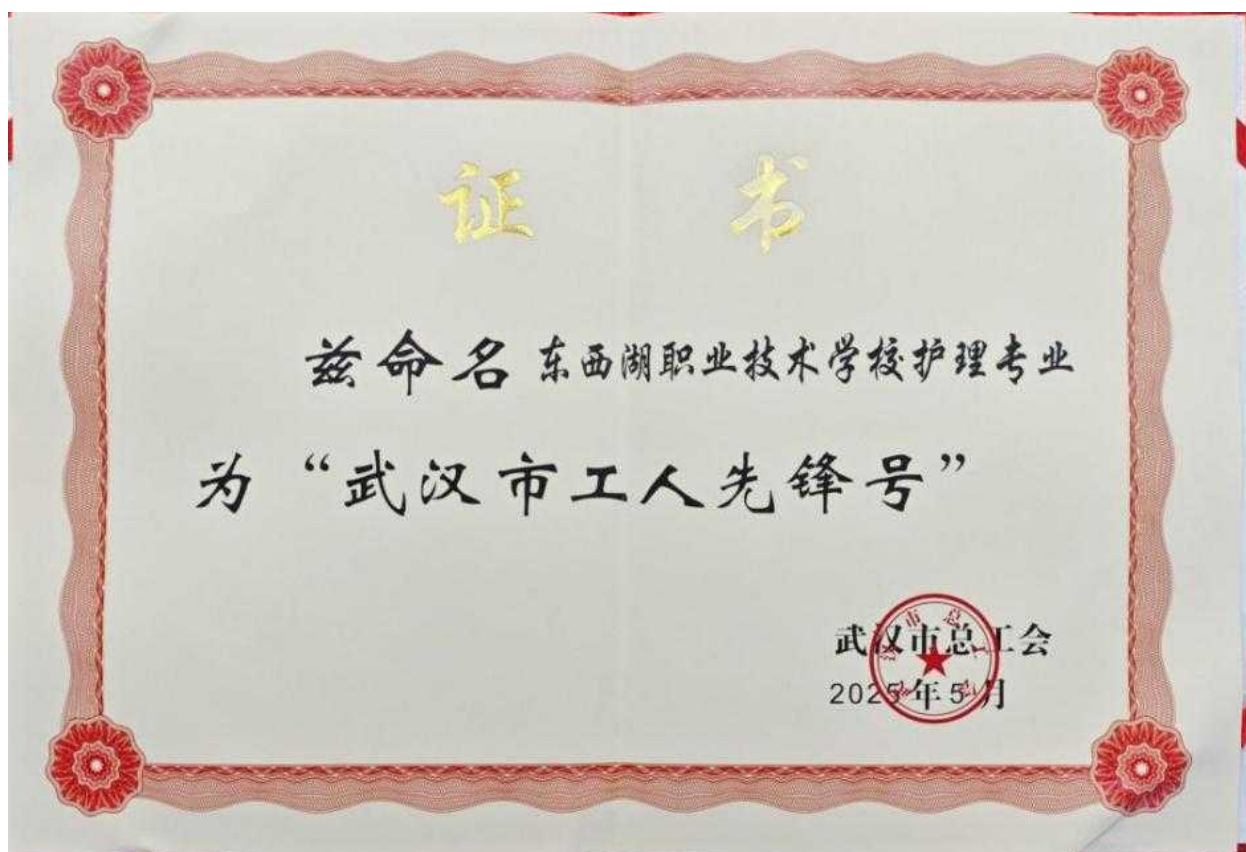 证 书
兹命名 东西湖职业技术学校护理专业
为“武汉市工人先锋号”
武汉市总工会
2025年5月